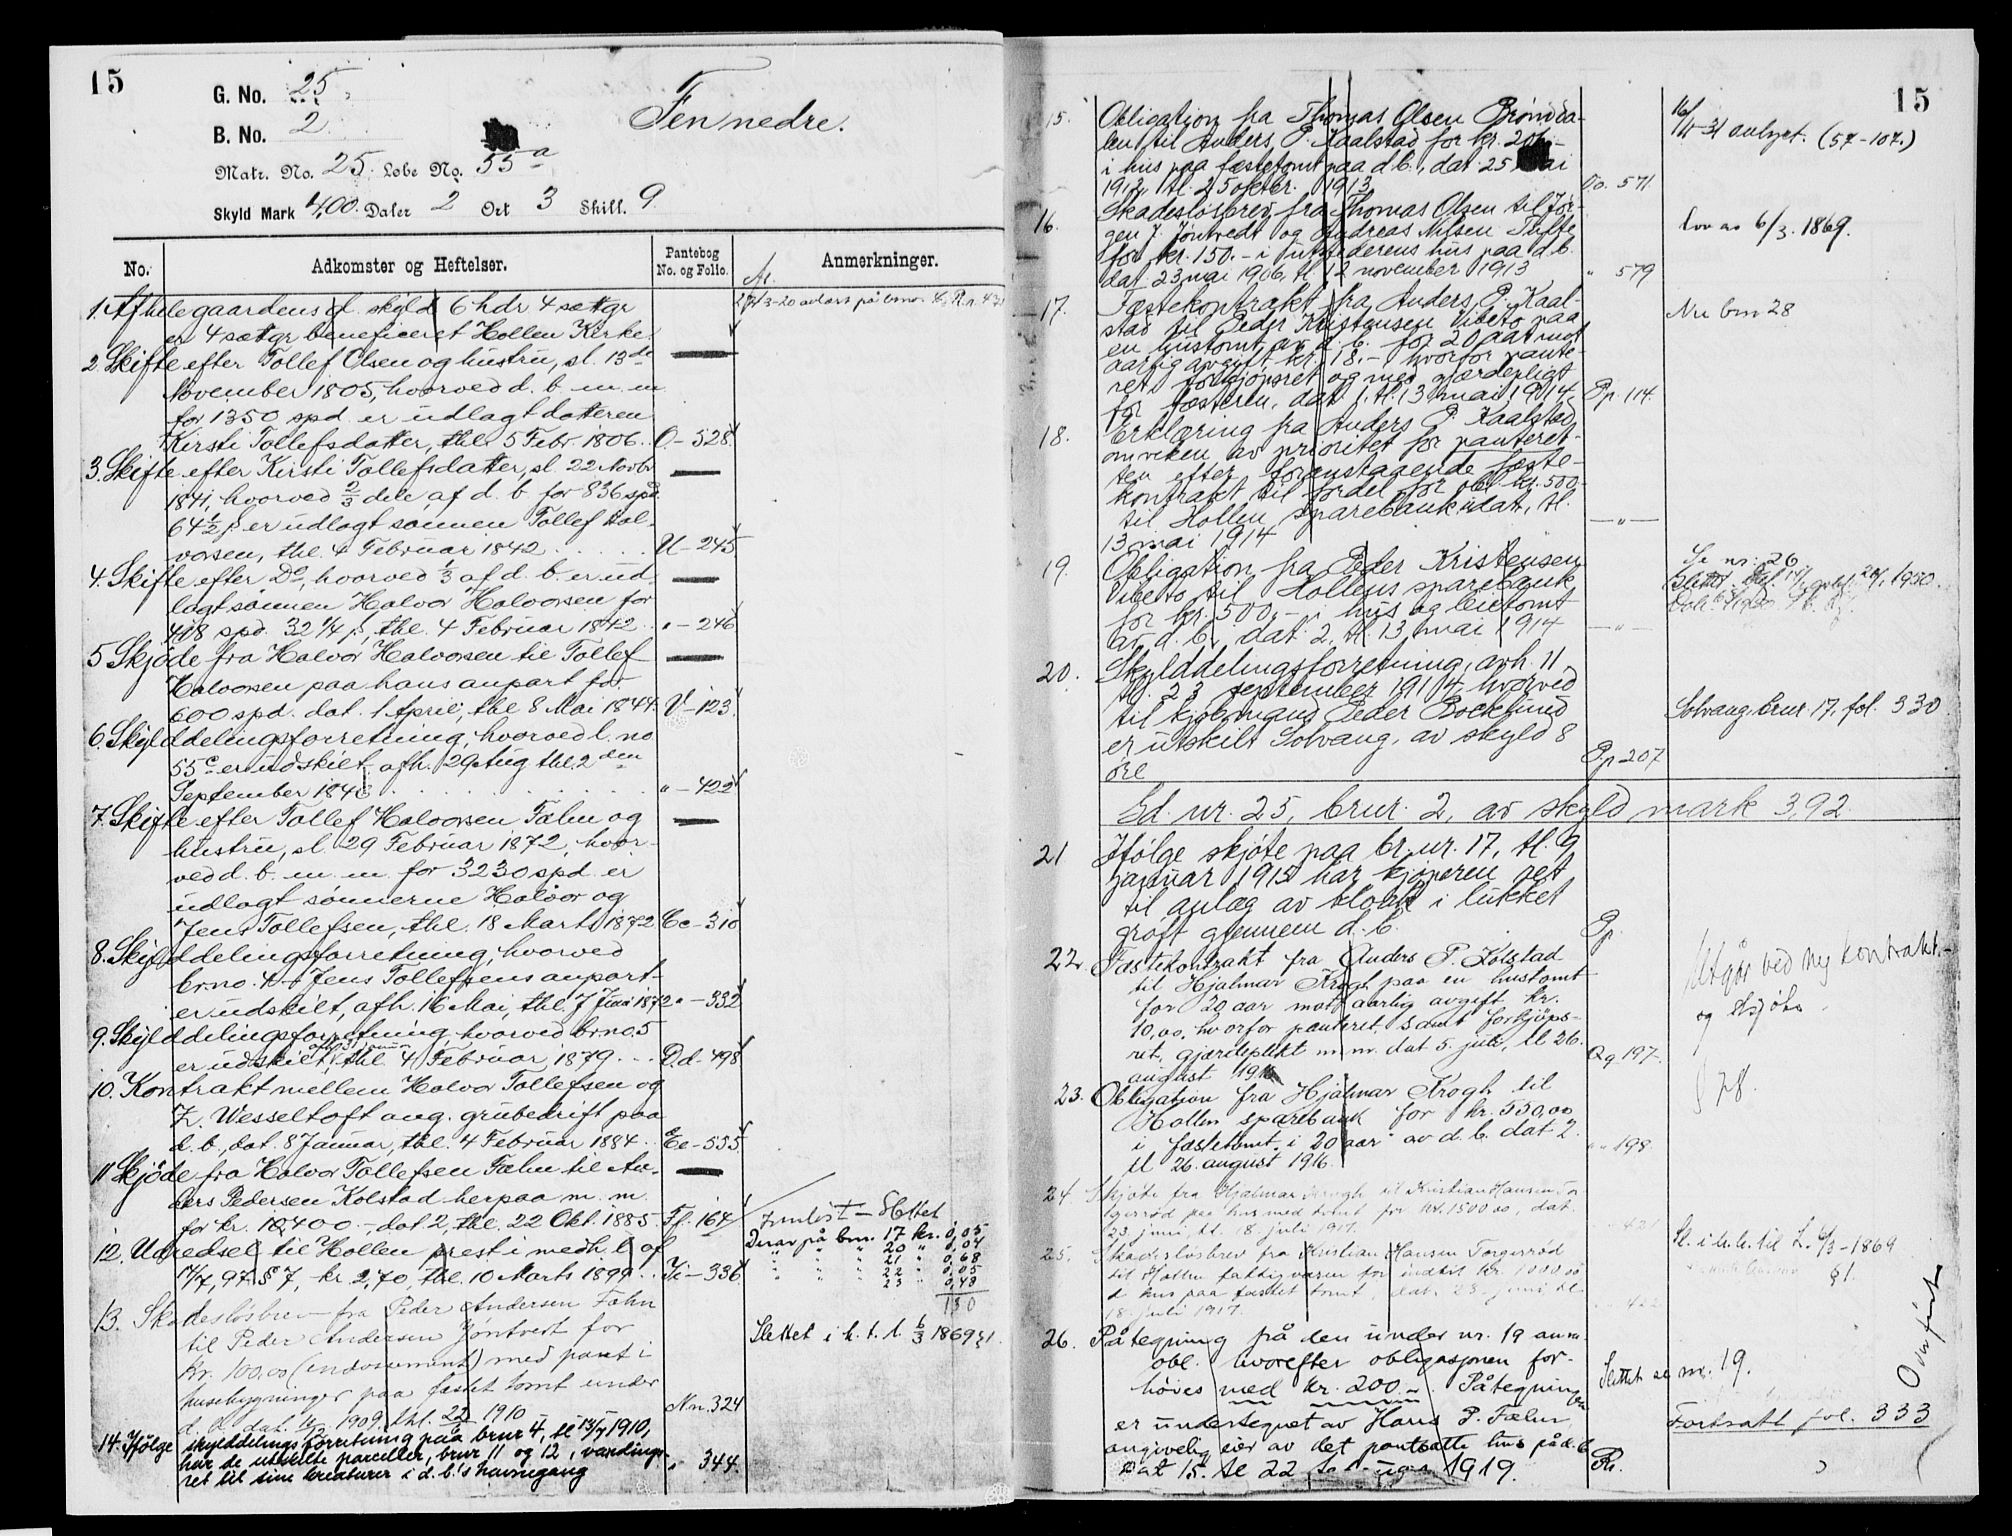 15
G. No. 25
B. No. 2
Fen nedre.
Matr. No. 25. Løbe No. 55a
Skyld Mark 4,00. Daler 2 Ort 3 Skill. 9
No. Adkomster og Heftelser. Pantebog No. og Folio. Anmerkninger.
1. Af hele gaardens gl. skyld 6 hdr 4 sættgr
er 4 sættgr beneficeret Hollen Kirke.
2. Skifte efter Tollef Olsen og hustru, sl. 13de
November 1805, hvorved d. b. m. m
for 1350 spd. er udlagt datteren
Kirsti Tollefsdatter, thl. 5 Febr 1806. O-528
3. Skifte efter Kirsti Tollefsdatter, sl. 22 Novbr
1841, hvorved 2/3 dele af d. b. for 836 spd.
64 1/2 β er udlagt sønnen Tollef Hal-
vorsen, thl. 4 Februar 1842 U-245
4. Skifte efter Do, hvorved 1/3 af d. b. er ud
lagt sønnen Halvor Halvorsen for
418 spd. 32 1/4 β, thl. 4 Februar 1842 " - 246
5. Skjøde fra Halvor Halvorsen til Tollef
Halvorsen paa hans anpart for
600 spd. dat. 1 April, thl 8 Mai 1844 V-123
6. Skylddelingsforretning, hvorved l. no
55c er udskilt, afh. 29 Aug thl. 2den
September 1846 " - 422
7. Skifte efter Tollef Halvorsen Fæhn og
hustru, sl. 29 Februar 1872, hvor-
ved d. b. m. m. for 3230 spd. er
udlagt sønnerne Halvor og
Jens Tollefsen, thl. 18 Marts 1872 Cc-310
8. Skylddelingsforretning, hvorved
brno. 4 Jens Tollefsens anpart
er udskilt, afh. 16 Mai, thl. 7 Juni 1872 " - 332
9. Skylddelingsforretning, hvorved brno. 5
er udskilt, thl. 4 Februar 1879. Dd-498
10. Kontrakt mellem Halvor Tollefsen og
Z. Wesseltoft ang. grubedrift paa
d. b., dat. 8 Januar, thl. 4 Februar 1884 Ee-535
11 Skjøde fra Halvor Tollefsen Fæhn til An-
ders Pedersen Kolstad herpaa m. m.
for kr. 10,400.-, dat 2, thl. 22 Okt. 1885. Ff. 164
12. Udredsel til Hollen prest i medh. l. af
14/7, 97. § 7, kr. 2,70, thl. 10 Marts 1899 Ii-336
Derav på brn. 17 kr. 0,05
" " " 20 " 0,04
" " " 21 " 0,68
" " " 22 " 0,05
" " " 23 " 0,48
1 30
13. Skadesløsbrev fra Peder Andersen Fæhn
til Peder Andersen Jøntvedt for
kr. 100,00 (endossement) med pant i
husebygninger paa fæstet tomt under
d. b. dat. 1909, thl. 22 1910 Nn. 324
Slettet i h. t. l. 6/3 1869 § 1.
14. Ifølge skylddelingsforretning paa brnr 4, tl 13/7 1910,
har de utskilte parceller, brnr 11 og 12, vandings-
ret til sine kreaturer i d. b.'s havnegang " 344.
15
15. Obligation fra Thomas Olsen Brøndda-
len til Anders P. Kaalstad for kr. 200,-
i hus paa fæstetomt paa d. b., dat 25 mai
1912, tl. 25 oktbr. 1913 Oo. 571.
31 avlyst. (57-107.)
16. Skadesløsbrev fra Thomas Olsen til Jør-
gen J. Jøntvedt og Andreas Nilsen Tufte
for kr. 150.- i utstederens hus paa d. b.
dat 23 mai 1906, tl. 12 november 1913 " 579
Lov av 6/3. 1869.
17. Fæstekontrakt fra Anders P. Kaal-
stad til Peder Kristensen Vibeto paa
en hustomt av d. b. for 20 aar mot
aarlig avgift, kr. 18.- hvorfor pante-
ret forkjøpsret og med gjærdepligt
for fæsteren, dat 1. tl. 13 mai 1914. Pp. 114
Nu brn 28
18. Erklæring fra Anders P. Kaalstad
om viken av prioritet for panteret-
ten efter foranstaaende fæste-
kontrakt til fordel for obl. kr. 500.-
til Hollen sparebank, dat, tl.
13 mai 1914 - " -
19. Obligation fra Peder Kristensen
Vibeto til Hollens sparebank
for kr. 500,- i hus og leietomt
av d. b., dat. 2, tl. 13 mai 1914 - " -
Se nr. 26
20. Skylddelingsforretning, avh. 11
tl. 23 september 1914, hvorved
til kjøbmand Peder Bocklund
er utskilt Solvang, av skyld 8
øre Pp 207
Solvang, brnr. 17, fol. 330
Gd. nr. 25, brnr. 2, av skyld mark 3,92.
21 Ifølge skjøte paa br. nr. 17, tl. 9
januar 1915 har kjøperen ret
til anlæg av kloak i lukket
grøft gjennem d. b. Pp.
22. Fæstekontrakt fra Anders P. Kolstad
til Hjalmar Krogh paa en hustomt
for 20 aar mot aarlig avgift kr.
10,00, hvorfor panteret samt forkjøps-
ret, gjærdeplikt m. m. dat 5. juli, tl 26.
august 1916 Qq 197.
Utgår ved ny kontrakt.-
og skjøte
23. Obligation fra Hjalmar Krogh til
Hollen sparebank for kr. 550,00
i fæstetomt i 20 aar av d. b. dat 2.
tl 26. august 1916. " 198.
24. Skjøte fra Hjalmar Krogh til Kristian Hansen Tor-
gersrød paa hus med tomt for kr. 1500,00, dat.
23 juni, tl. 18. juli 1917. " 421
25. Skadesløsbrev fra Kristian Hansen Torgersrød
til Hollen fattigvæsen for indtil kr. 1000,00
i hus paa fæstet tomt, dat. 23 juni tl.
18. juli 1917. " 422
Sl. i h. h. til L. 6/3-1869
§ 1.
26. Påtegning på den under nr. 19 anm.
obl. hvorefter obligasjonen for-
høies med kr. 200.- Påtegningen
er undertegnet av Hans P. Fæhn,
angivelig eier av det pantsatte hus på d. b.
Dat 15. tl 22 1919. Rr.
Slettet se nr. 19.
Overført
Fortsatt fol. 333